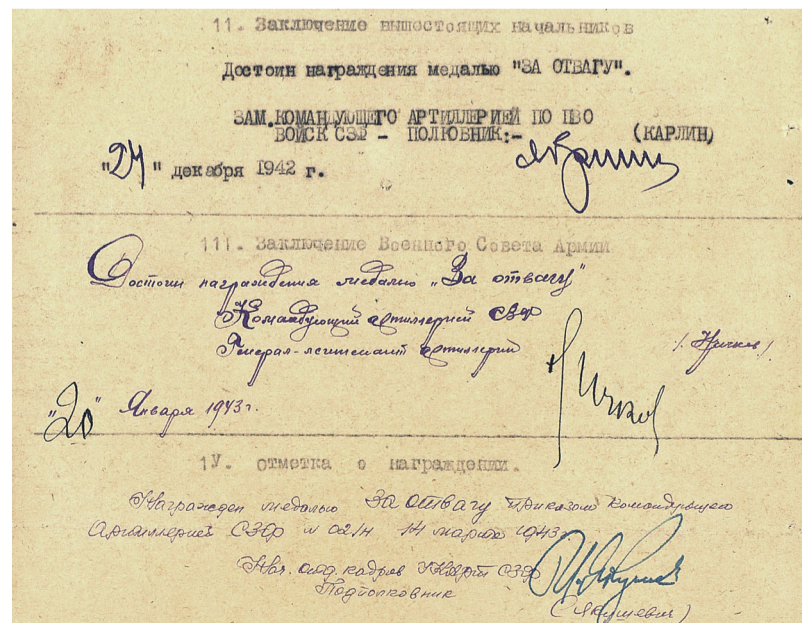 11. Заключение вышестоящих начальников
Достоин награждения медалью "ЗА ОТВАГУ".
ЗАМ.КОМАНДУЮЩЕГО АРТИЛЛЕРИЕЙ ПО ПВО
ВОЙСК СЗФ - ПОЛКОВНИК:- (КАРЛИН)
" " декабря 1942 г.
111. Заключение Военного Совета Армии
Достоин награждения медалью „За отвагу"
Командующий артиллерией СЗФ
Генерал-лейтенант артиллерии
"20" Января 1943г.
1У. отметка о награждении.
Награжден медалью За отвагу приказом Командующего
Артиллерией СЗФ N 02/н 14 марта 1943
Нач. отд. кадров СЗФ
Подполковник
(Якушевич)